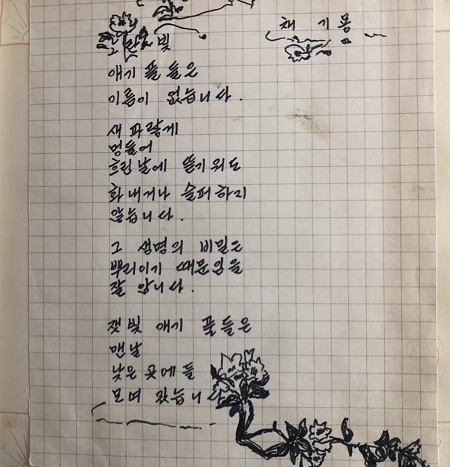 그 란 빛
채 기 봉
애기 풀 들은
이름이 없습니다.
새파랗게
멍들어
흐린날에 뜰기워도
화내거나 슬퍼하지
않습니다.
그 생명의 비밀은
뿌리이기 때문임을
잘 압니다.
잿빛 애기 풀들은
맨날
낮은 곳에들
모여 왔습니다